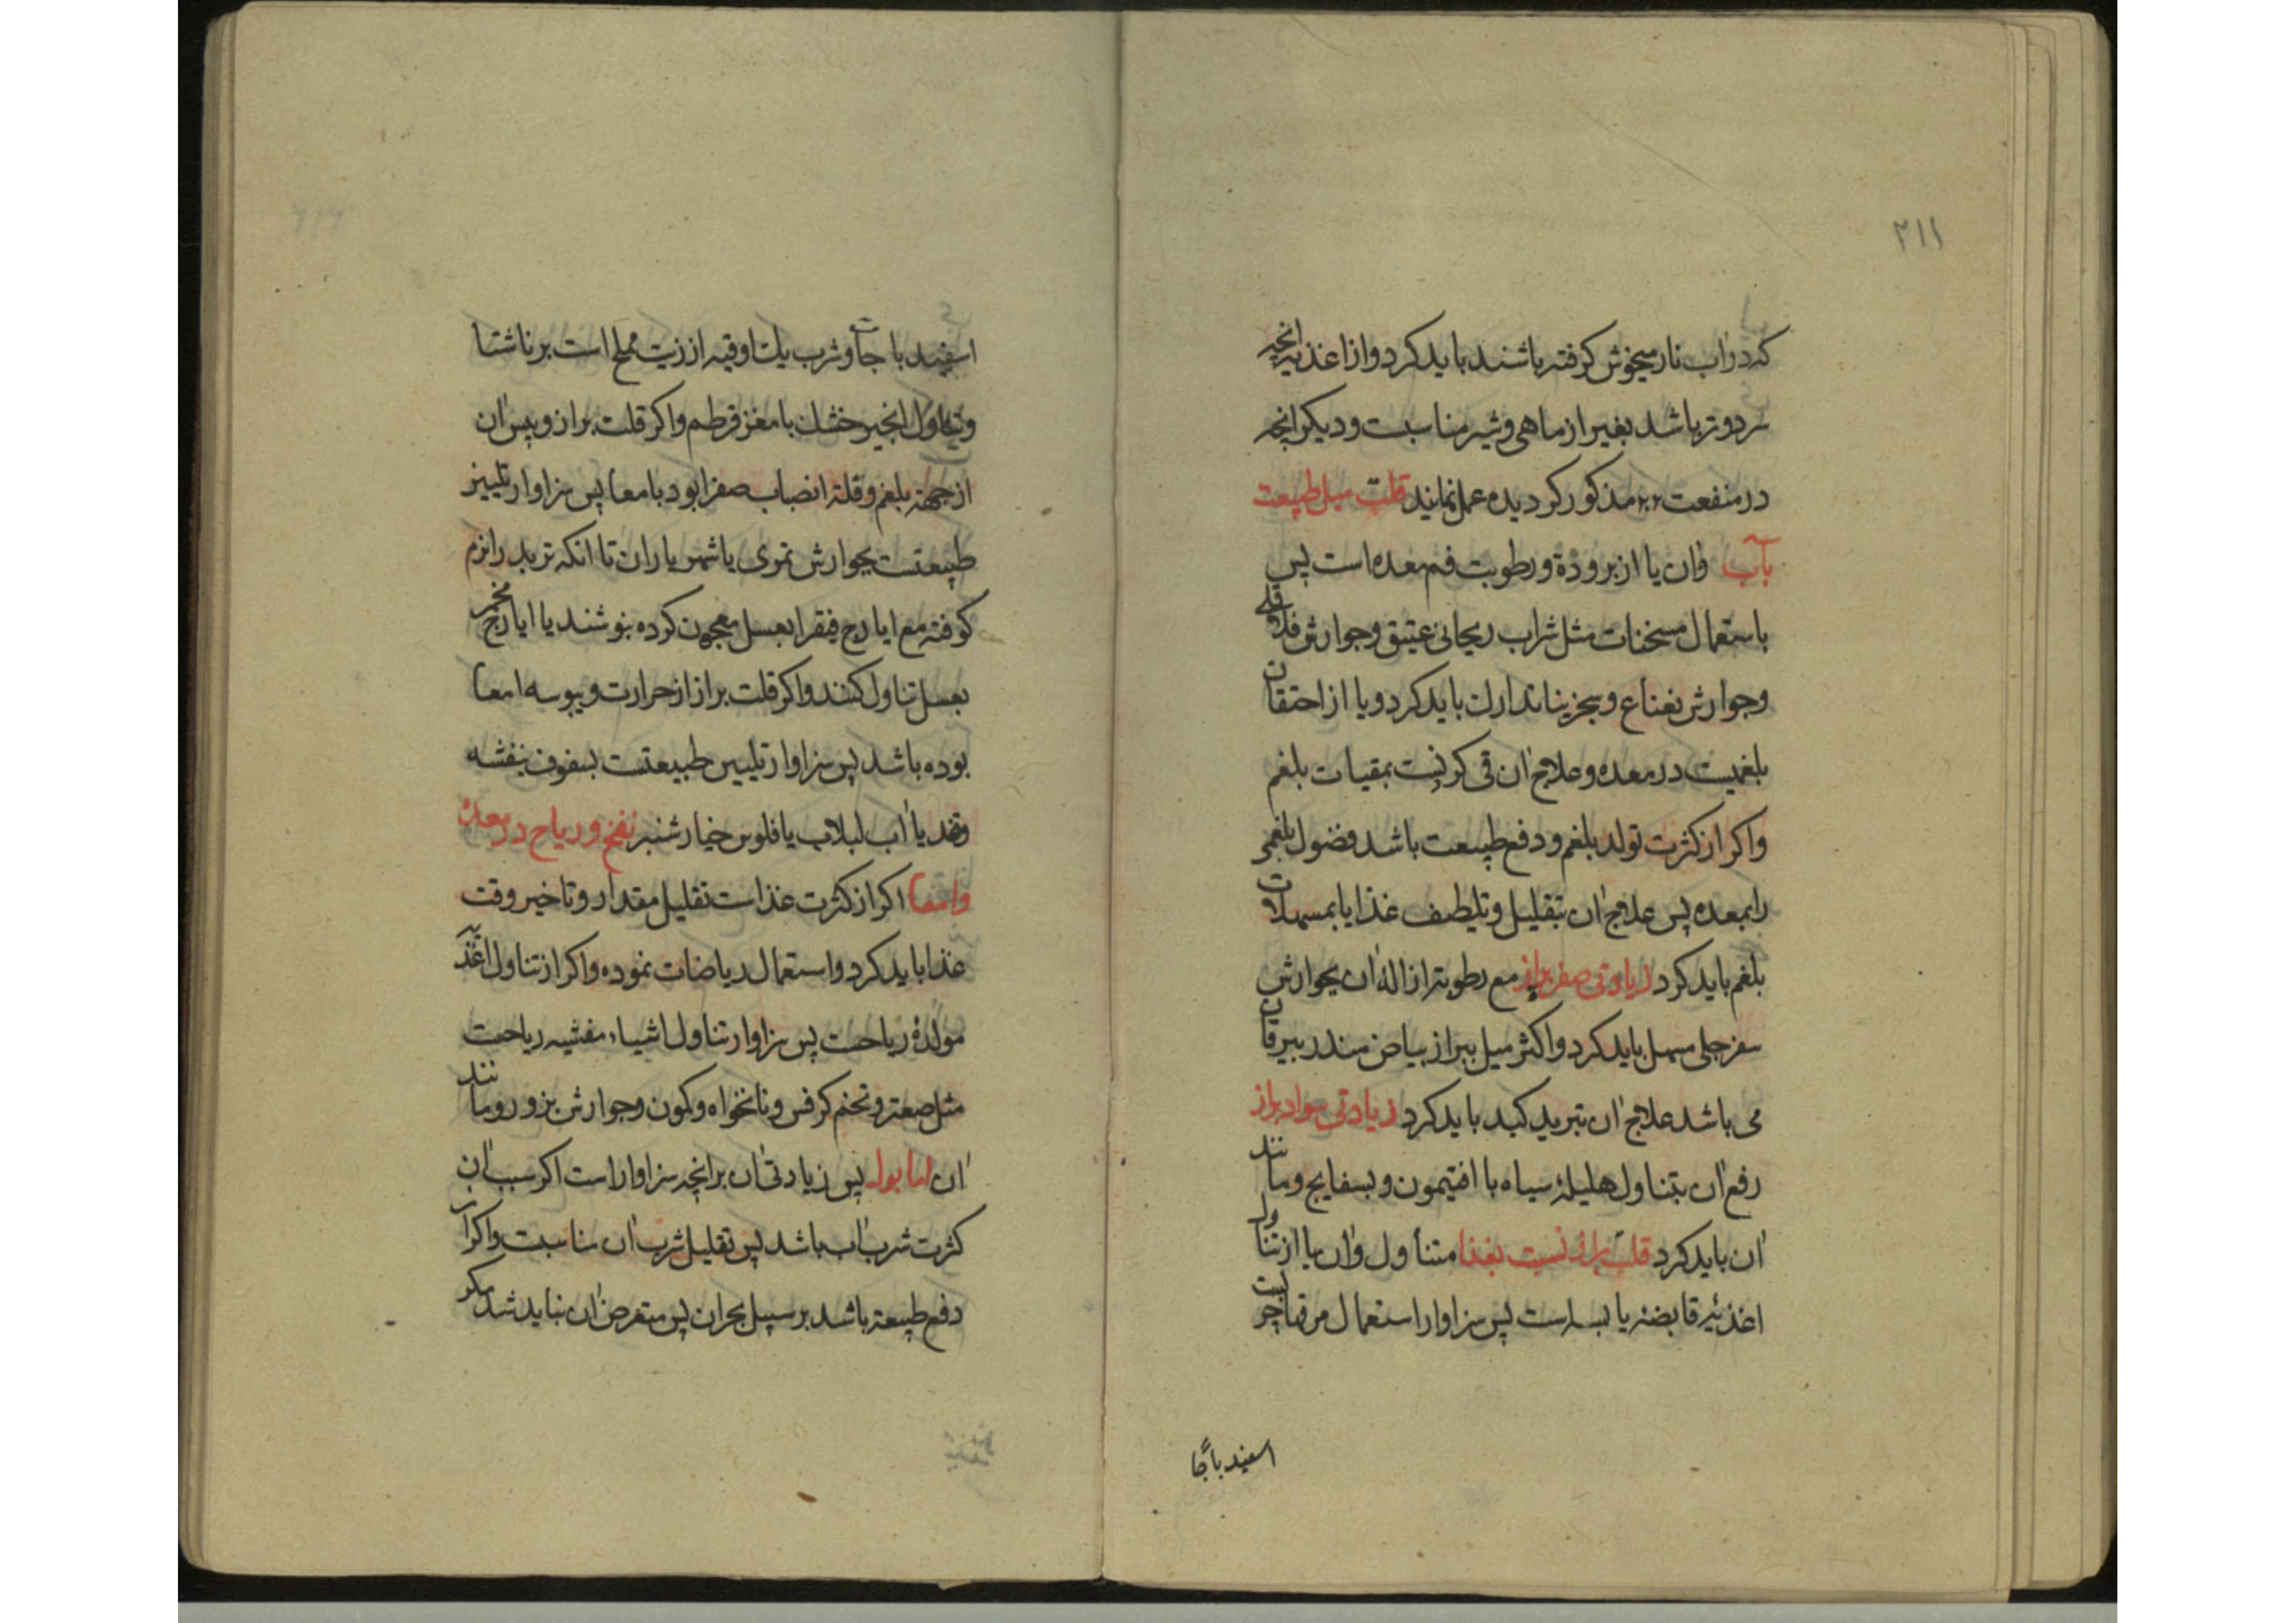 ۲۱۱
که در آب نار میخوش کرفته باشند باید کرد و از اغذیه انچه
سرد و تر باشد بغیر از ماهی و شیر مناسبت و دیکر انچه
در منفعت مذکور کردیده عمل نمایند قلت میل طبیعت
بآب وآن یا از برودة و رطوبت فم معده است پس
باستعمال مسخنات مثل شراب ریحانی عتیق و جوارش فلافلی
و جوارش نعناع و سجزینا تدارك باید کرد و یا از احتقان
بلغمیست در معده و علاج آن قی کرنست بمقیات بلغم
واکر از کثرت تولد بلغم و دفع طبیعت باشد فضول بلغمی
را بمعده پس علاج آن بتقلیل و تلطیف غذا یا بمسهلات
بلغم باید کرد زیادتی صفر براز مع رطوبتر ازالهٔ آن بجوارش
سفرجلی مسهل باید کرد و اکثر میل ببراز بیاض منذر بیرقان
می باشد علاج آن بتبرید کبد باید کرد زیادتی سواد براز
رفع آن بتناول هلیلهٔ سیاه با افتیمون و بسفایج و مانند
آن باید کرد قلت براز نسبت بغذا متناول وآن یا از تناول
اغذیهٔ قابضه یا یابسه است پس سزاوار استعمال مرقها چربست
اسفیدباجا
اسفیدباجات و شرب یك اوقیه از زیت مملح است بر ناشتا
و تناول انجیر خشك با مغز قرطم واکر قلت براز و یبس آن
از جهة بلغم و قلة انصاب صفرا بود بامعا پس سزاوار تلیین
طبیعتست بجوارش تمری یا شهریاران تا انکه تربد را نرم
کوفته مع ایارج فیقرا بعسل معجون کرده بنوشند یا ایارج مخمر
بعسل تناول کنند واکر قلت براز از حرارت و یبوسه امعا
بوده باشد پس سزاوار تلیین طبیعتست بسفوف بنفشه
وقند یا آب لبلاب یا فلوس خیارشنبر نفخ و ریاح در معده
وامعا اکر از کثرت غذاست تقلیل مقدار و تاخیر وقت
غذا باید کرد و استعمال ریاضات نموده واکر از تناول اغذیه
مولدهٔ ریاحست پس سزاوار تناول اشیاء مفشیه ریاحست
مثل صعتر و تخم کرفس و نانخواه و کمون و جوارش بزور و مانند
آن اما بول پس زیادتی آن برانچه سزاوار است اکر سبب آن
کثرت شرب آب باشد پس تقلیل شرب آن مناسبت واکر از
دفع طبیعة باشد بر سبیل بحران پس متعرض آن نباید شد مکر